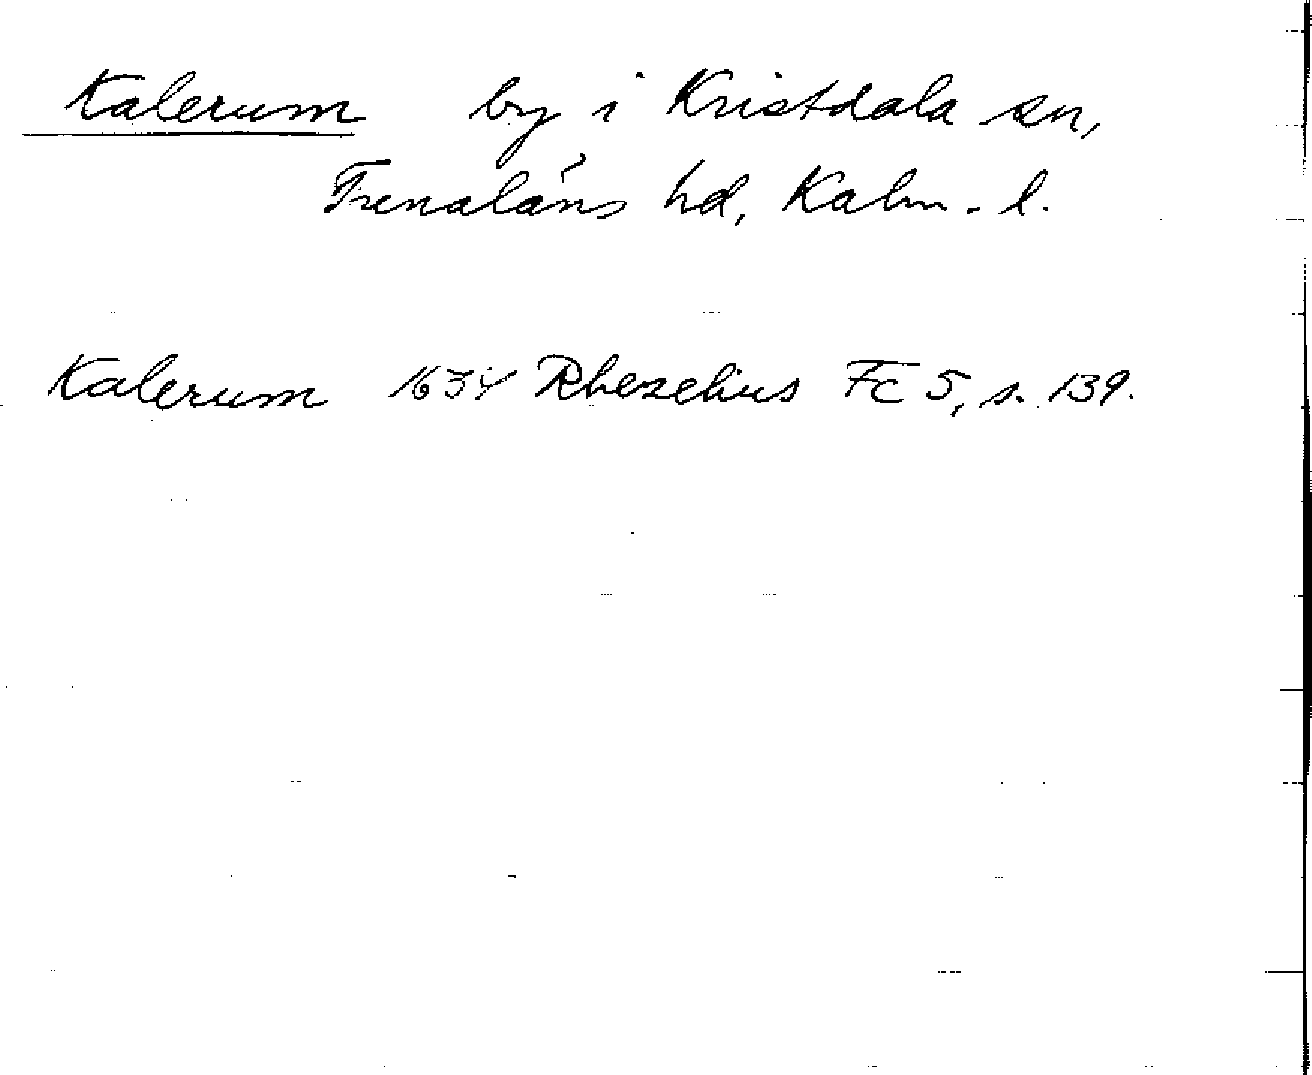 Kalerum by i Kristdala sn,
Trenaláns hd, Kalm. l.
Kalerum 1634 Rhezelius Fc 5, s. 139.